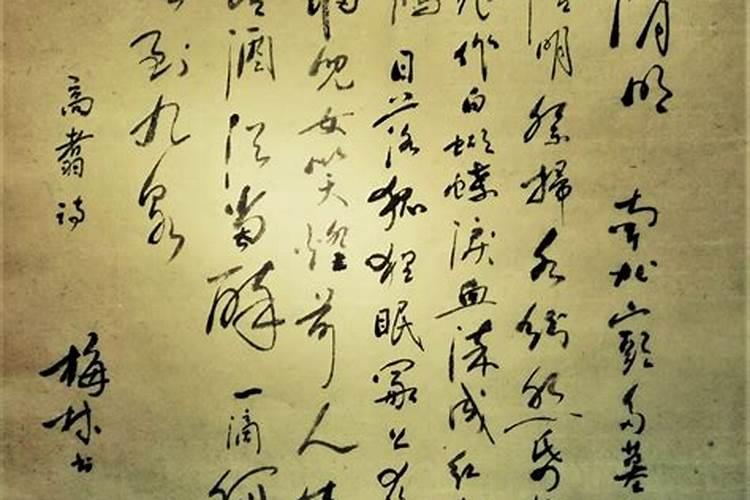 清明 南北山頭多墓
清明祭掃各紛然紙
飛作白蝴蝶淚血染成紅
鵑日落狐狸眠冢上夜
歸兒女笑燈前人生
酒須當醉一滴何
到九泉
高翥詩
梅林书